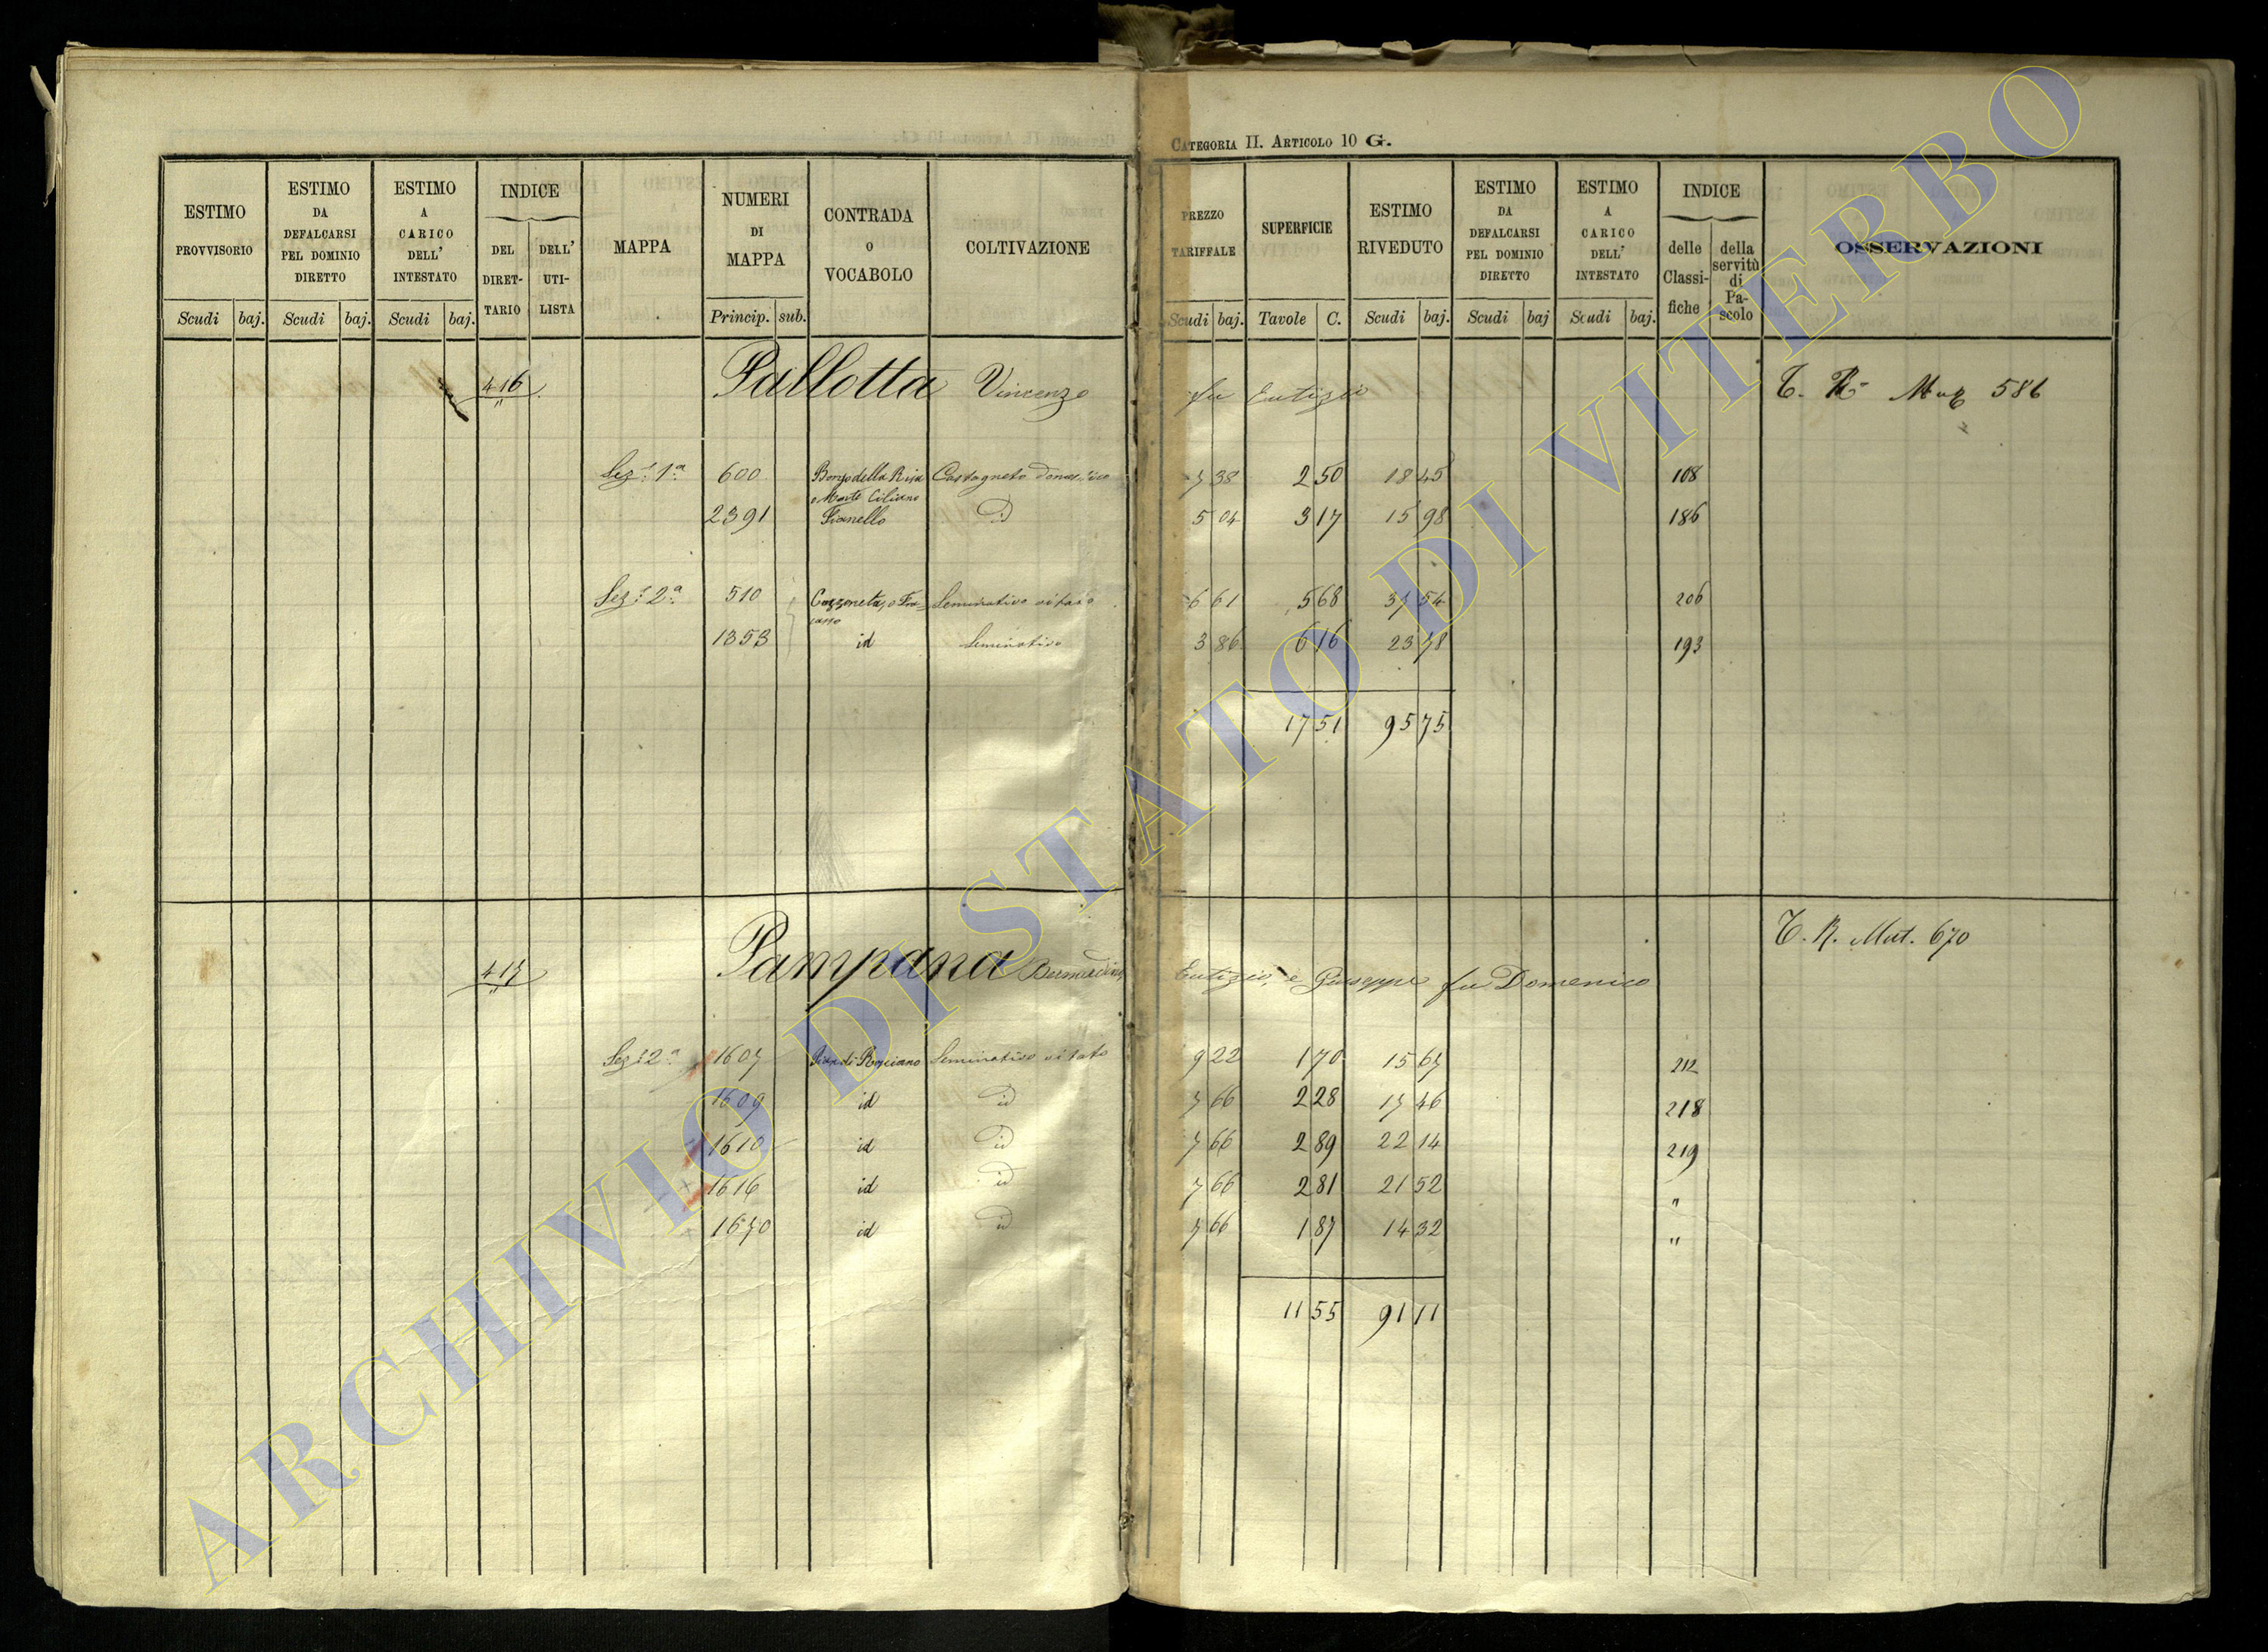 CATEGORIA II. ARTICOLO 10 G.
ESTIMO PROVVISORIO Scudi baj.
ESTIMO DA DEFALCARSI PEL DOMINIO DIRETTO Scudi baj.
ESTIMO A CARICO DELL' INTESTATO Scudi baj.
INDICE DEL DIRETTARIO DELL' UTILISTA
MAPPA
NUMERI DI MAPPA Princip. sub.
CONTRADA O VOCABOLO
COLTIVAZIONE
PREZZO TARIFFALE Scudi baj.
SUPERFICIE Tavole C.
ESTIMO RIVEDUTO Scudi baj.
ESTIMO DA DEFALCARSI PEL DOMINIO DIRETTO Scudi baj
ESTIMO A CARICO DELL' INTESTATO Scudi baj.
INDICE delle Classifiche della servitù di Pascolo
OSSERVAZIONI
416 Pallotta Vincenzo fu Eutizio T. R. 586
Sez.e 1a 600 Borgo della Castagneto domestico 7 38 2 50 18 45 108
o Monte Ciliano
2391 Fianello id 5 04 3 17 15 98 186
Sez.e 2a 510 Seminativo vitato 6 61 5 68 37 54 206
1353 id Seminativo 3 86 6 16 23 78 193
17 51 95 75
417 Pampana Bernardino, Eutizio, e Giuseppe fu Domenico T. R. Mut. 670
Sez.e 2a 1607 Seminativo vitato 9 22 1 70 15 67 212
1609 id id 7 66 2 28 17 46 218
1610 id id 7 66 2 89 22 14 219
1616 id id 7 66 2 81 21 52 "
1670 id id 7 66 1 87 14 32 "
11 55 91 11
ARCHIVIO DI STATO DI VITERBO